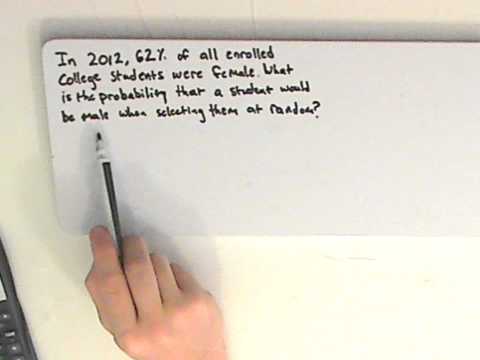 In 2012, 62% of all enrolled
College students were female. What
is the probability that a student would
be male when selecting them at random?